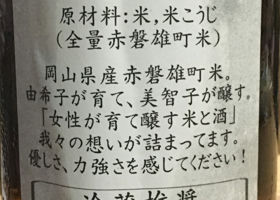 原材料:米,米こうじ
(全量赤磐雄町米)
岡山県産赤磐雄町米。
由希子が育て、美智子が醸す。
「女性が育て醸す米と酒」
我々の想いが詰まってます。
優しさ、力強さを感じてください!